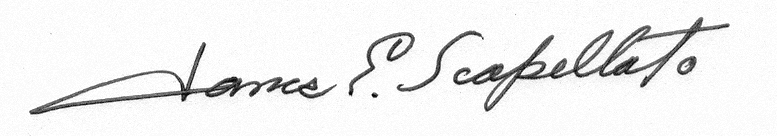 James E. Scapellato